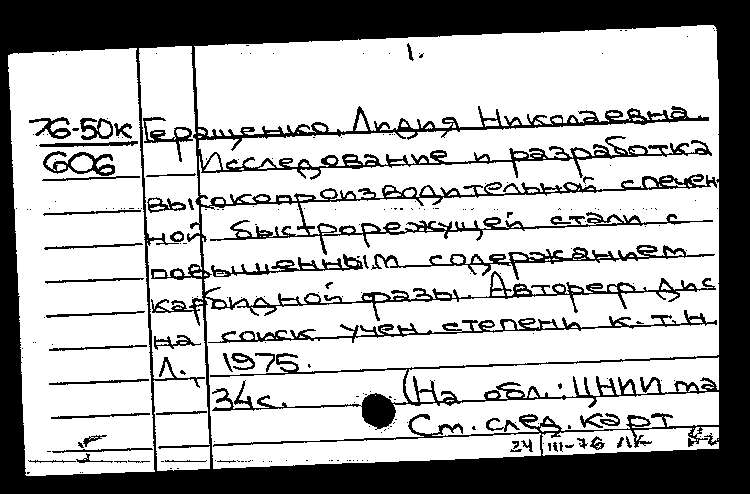 1.
76-50к Геращенко, Лидия Николаевна.
606 Исследование и разработка
высокопроизводительной спечен-
ной быстрорежущей стали с
повышенным содержанием
карбидной фазы. Автореф. дис
на соиск. учен. степени к.т.н.
Л., 1975.
34с. (На обл.: ЦНИИ та
См. след. карт
24 III-76 ЛК